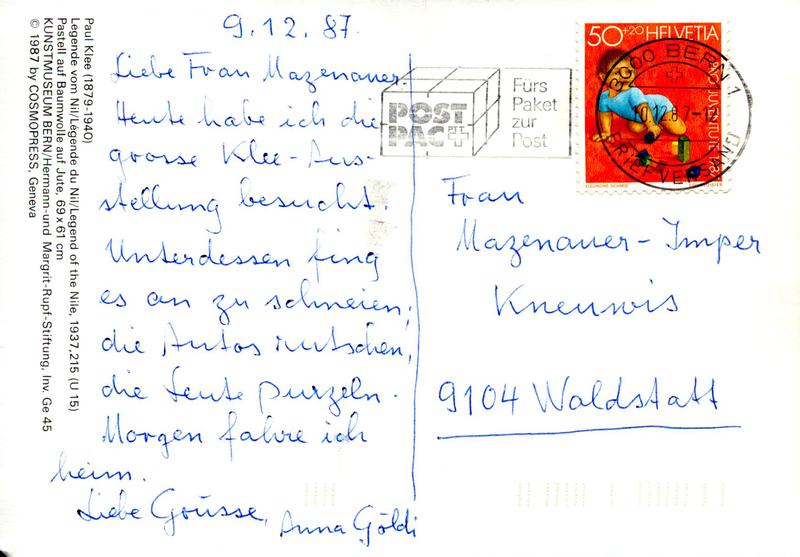 9.12.87.
Liebe Frau Mazenauer!
Heute habe ich die
grosse Klee-Aus-
stellung besucht.
Unterdessen fing
es an zu schneien,
die Autos rutschen,
die Leute purzeln.
Morgen fahre ich
heim.
Liebe Grüsse, Anna Göldi
Paul Klee (1879-1940)
Legende vom Nil/Légende du Nil/Legend of the Nile, 1937,215 (U 15)
Pastell auf Baumwolle auf Jute, 69 x 61 cm
KUNSTMUSEUM BERN/Hermann-und Margrit-Rupf-Stiftung, Inv. Ge 45
© 1987 by COSMOPRESS, Geneva
POST
PAC PTT
Fürs
Paket
zur
Post
50+20 HELVETIA
PRO JUVENTUTE 1987
ELEONORE SCHMID
3000 BERN 1
10.12.87-12
BRIEFVERSAND
Frau
Mazenauer-Imper
Kneuwis
9104 Waldstatt